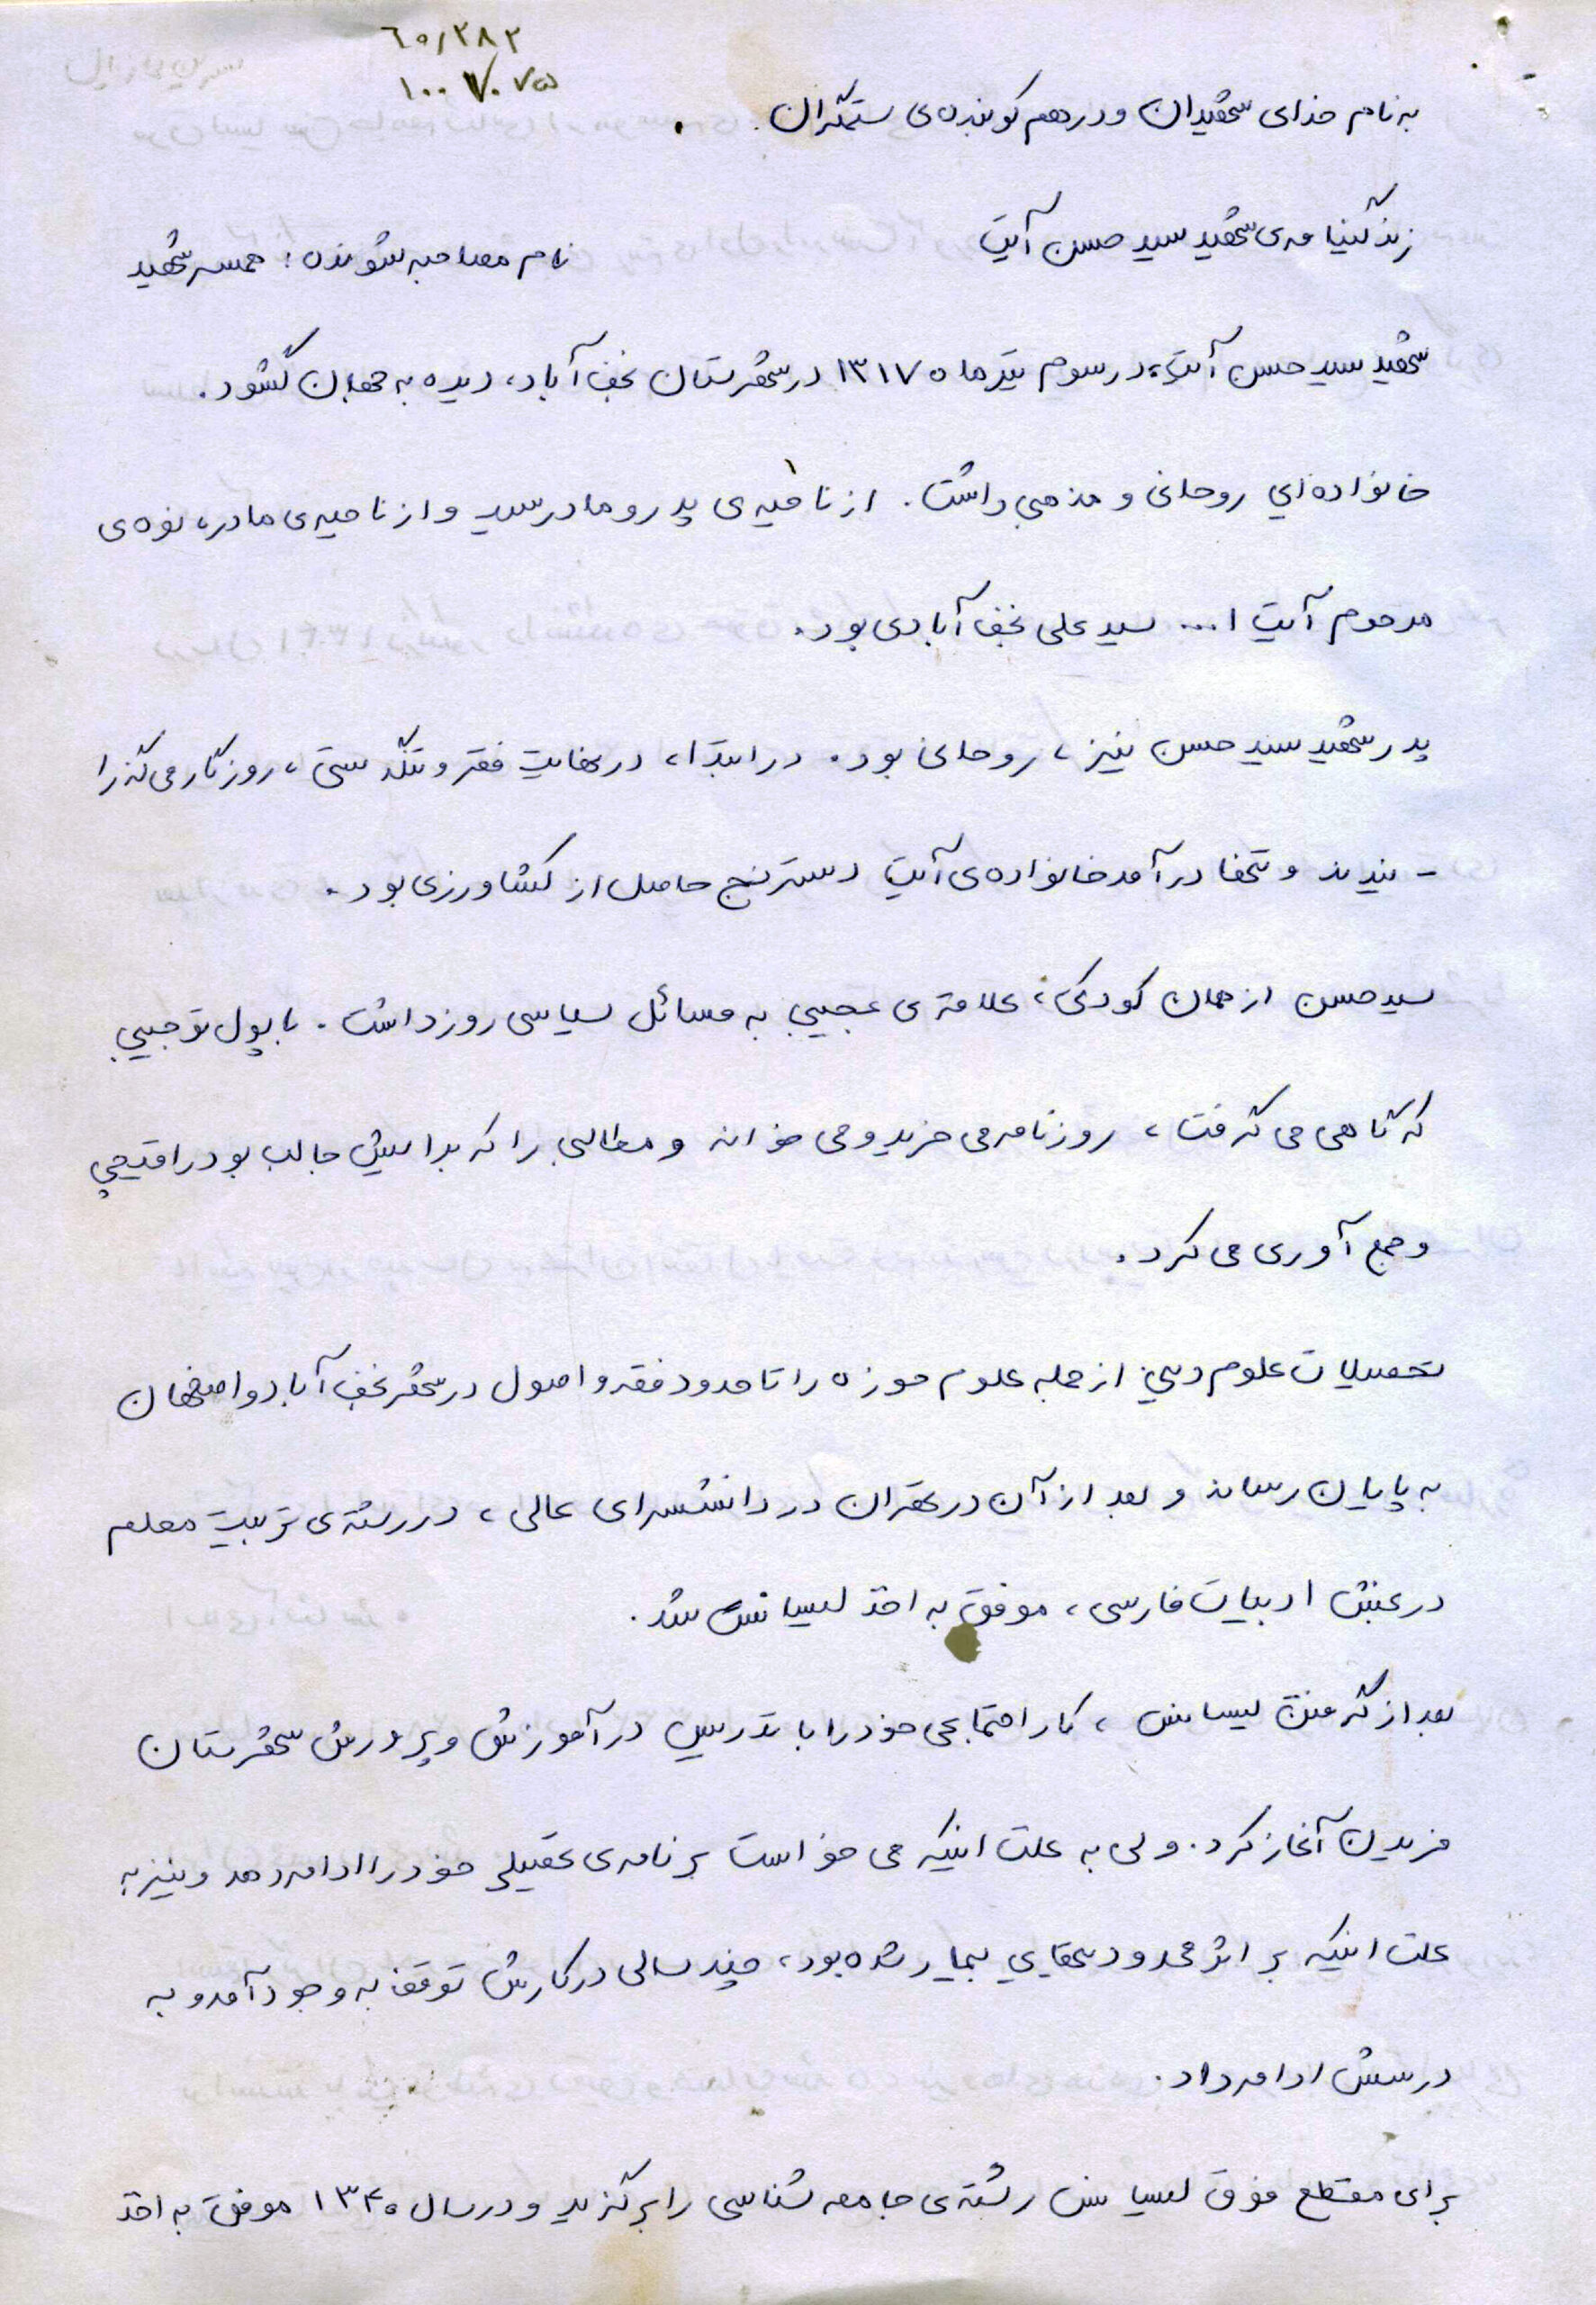 ۶۰/۲۸۲
۱۰۰۷۰۷۵
به نام خدای شهیدان و درهم کوبنده‌ی ستمگران.
زندگینامه‌ی شهید سید حسن آیت
نام مصاحبه شونده: همسر شهید
شهید سید حسن آیت، در سوم تیرماه ۱۳۱۷ در شهرستان نجف آباد، دیده به جهان گشود.
خانواده‌ای روحانی و مذهبی داشت. از ناحیه‌ی پدر و مادر سید و از ناحیه‌ی مادر، نوه‌ی
مرحوم آیت ا... سید علی نجف آبادی بود.
پدر شهید سید حسن نیز، روحانی بود. در ابتدا، در نهایت فقر و تنگدستی، روزگار می گذرا
- نیدند و تنها درآمد خانواده‌ی آیت دسترنج حاصل از کشاورزی بود.
سید حسن از همان کودکی، علاقه‌ی عجیبی به مسائل سیاسی روز داشت. با پول توجیبی
که گاهی می گرفت، روزنامه می خرید و می خواند و مطالبی را که برایش جالب بود را قیچی
و جمع آوری می کرد.
تحصیلات علوم دینی از جمله علوم حوزه را تا حدود فقه و اصول در شهر نجف آباد و اصفهان
به پایان رساند و بعد از آن در تهران در دانشسرای عالی، در رشته‌ی تربیت معلم
در بخش ادبیات فارسی، موفق به اخذ لیسانس شد.
بعد از گرفتن لیسانس، کار اجتماعی خود را با تدریس در آموزش و پرورش شهرستان
فریدن آغاز کرد. ولی به علت اینکه می خواست برنامه‌ی تحصیلی خود را ادامه دهد و نیز به
علت اینکه بر اثر محدودیتهایی بیمار شده بود، چند سالی در کارش توقف به وجود آمد و به
درسش ادامه داد.
برای مقطع فوق لیسانس رشته‌ی جامعه شناسی را برگزید و در سال ۱۳۴۰ موفق به اخذ